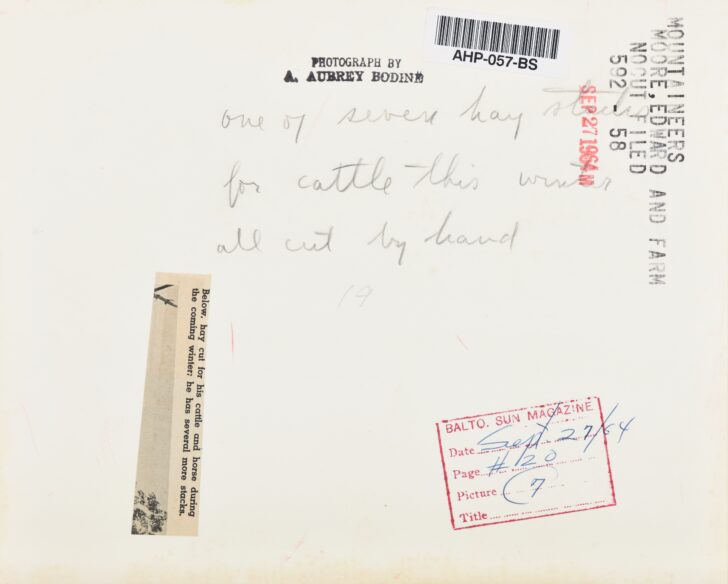 AHP-057-BS
PHOTOGRAPH BY
A. AUBREY BODINE
MOUNTAINEERS
MOORE, EDWARD AND FARM
NOCUT FILED
592 - 58
SEP 27 1964
one of seven hay stacks
for cattle this winter
all cut by hand
19
Below, hay cut for his cattle and horse during
the coming winter; he has several more stacks.
BALTO. SUN MAGAZINE
Date Sept 27/64
Page #20
Picture 7
Title